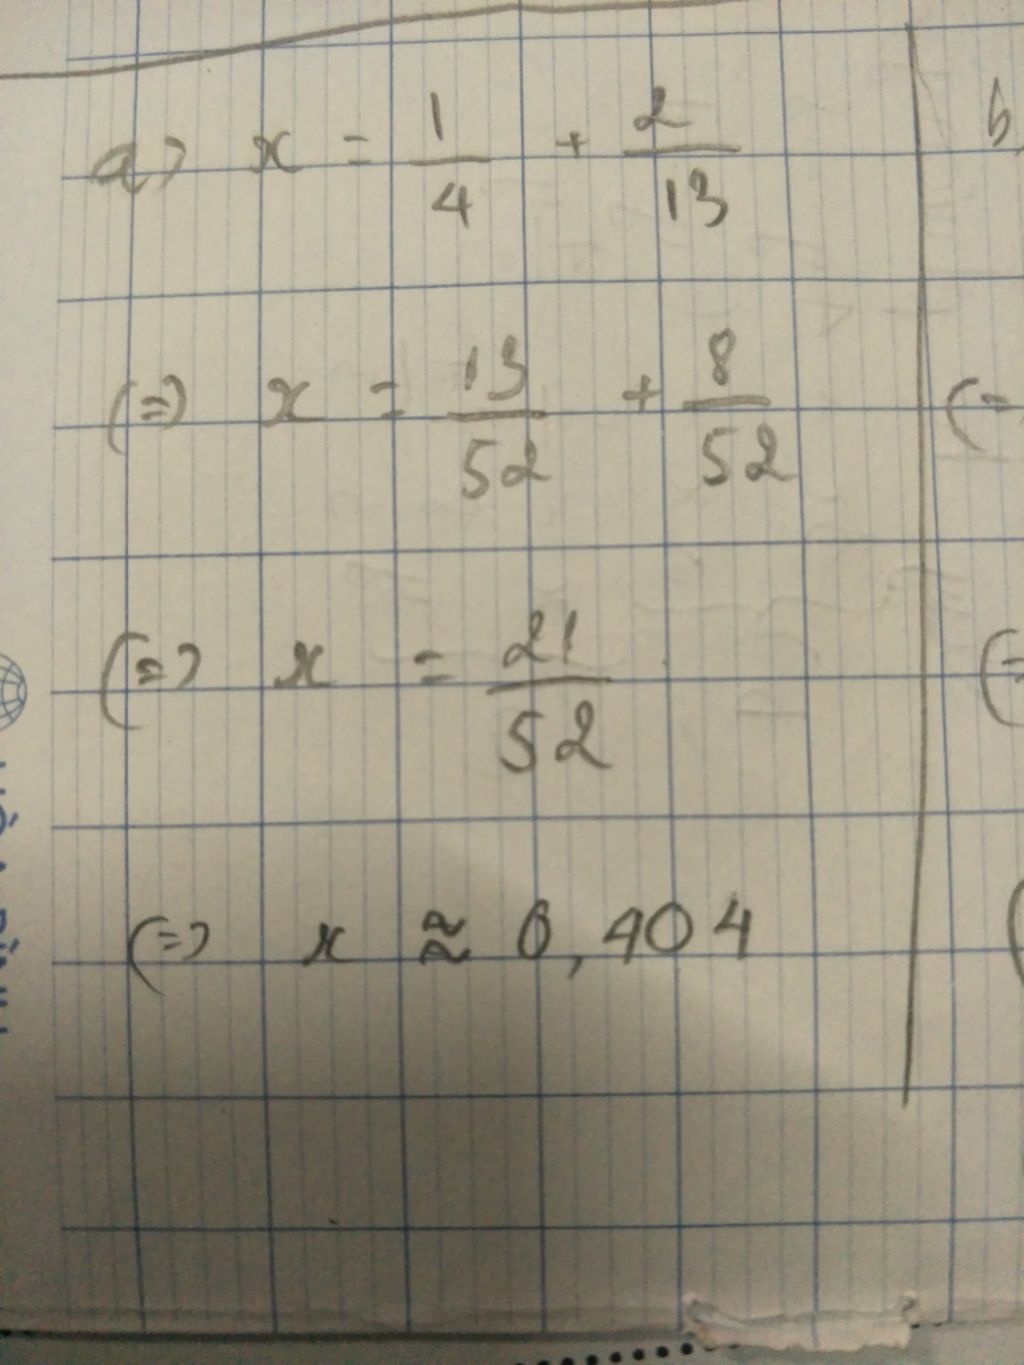 a) x = 1/4 + 2/13
(=) x = 13/52 + 8/52
(=) x = 21/52
(=) x ≈ 0,404
b
(=
(=
(